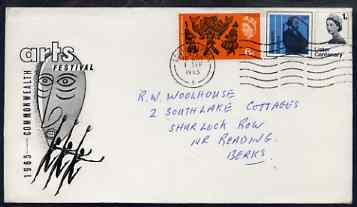 arts
FESTIVAL
1965 — COMMONWEALTH
6D
1/-
Lister
Centenary
1 SEP
1965
R.W. WOOLHOUSE
2 SOUTHLAKE COTTAGES
SHARLOCK ROW
NR READING.
BERKS.